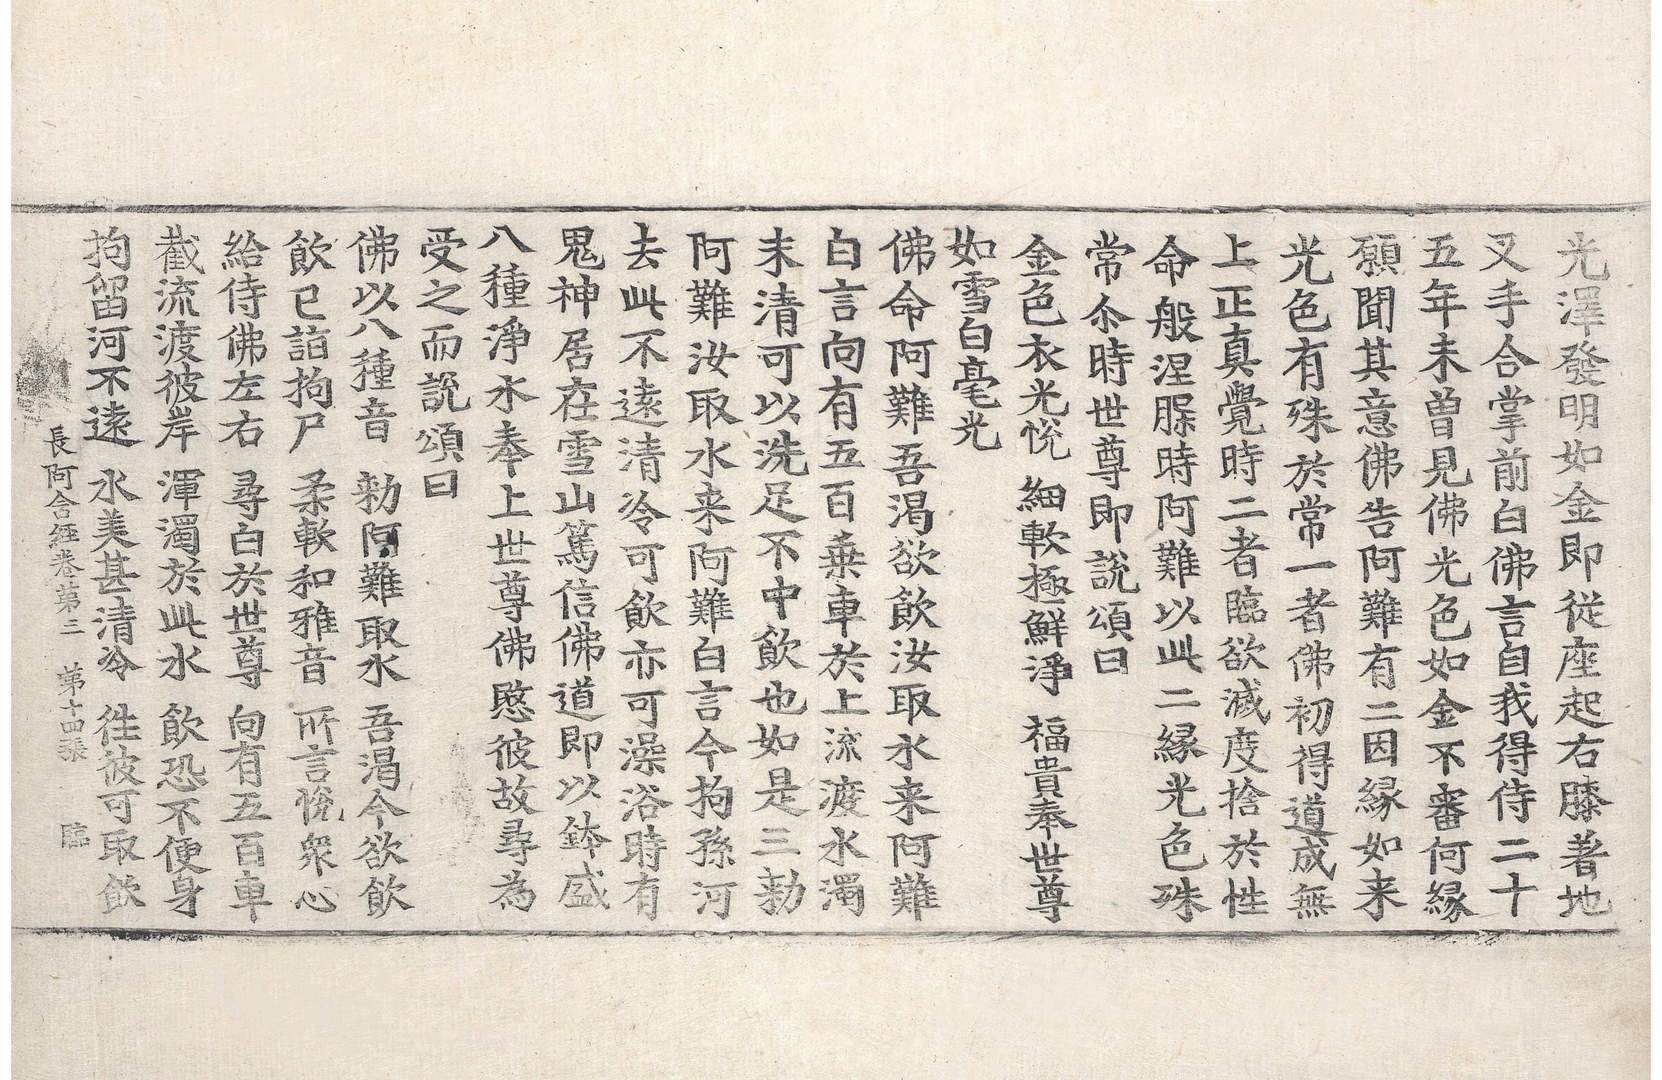 光澤發明如金即從座起右膝著地
叉手合掌前白佛言自我得侍二十
五年未曽見佛光色如金不審何縁
願聞其意佛告阿難有二因縁如来
光色有殊於常一者佛初得道成無
上正真覺時二者臨欲滅度捨於性
命般涅槃時阿難以此二縁光色殊
常尒時世尊即說頌曰
金色衣光悅　細軟極鮮淨　福貴奉世尊
如雪白毫光
佛命阿難吾渴欲飲汝取水来阿難
白言向有五百乗車於上流渡水濁
未清可以洗足不中飲也如是三勑
阿難汝取水来阿難白言今拘孫河
去此不遠清冷可飲亦可澡浴時有
鬼神居在雪山篤信佛道即以鉢盛
八種淨水奉上世尊佛愍彼故尋為
受之而說頌曰
佛以八種音　勑阿難取水　吾渴今欲飲
飲已詣拘尸　柔軟和雅音　所言悅衆心
給侍佛左右　尋白於世尊　向有五百車
截流渡彼岸　渾濁於此水　飲恐不便身
拘留河不遠　水美甚清冷　徃彼可取飲
長阿含經卷第三　第十四張　臨